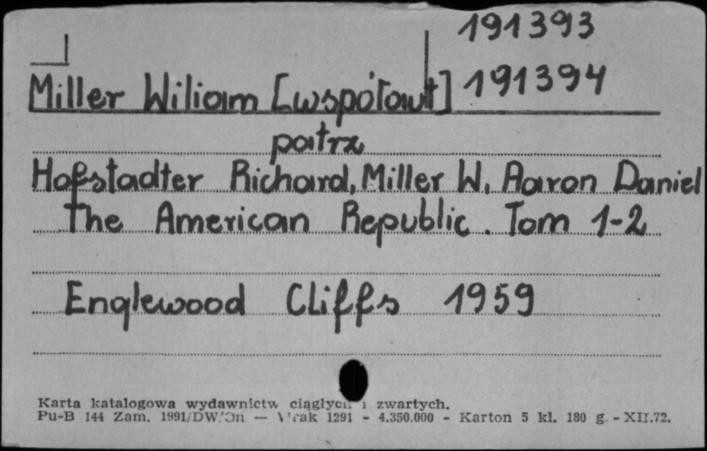 191393
Miller Wiliam [współaut] 191394
patrz
Hofstadter Richard, Miller W. Aaron Daniel
The American Republic. Tom 1-2
Englewood Cliffs 1959
Karta katalogowa wydawnictw ciągłych i zwartych.
Pu-B 144 Zam. 1991/DW/On — 1291 - 4.350.000 - Karton 5 kl. 180 g. - XII.72.